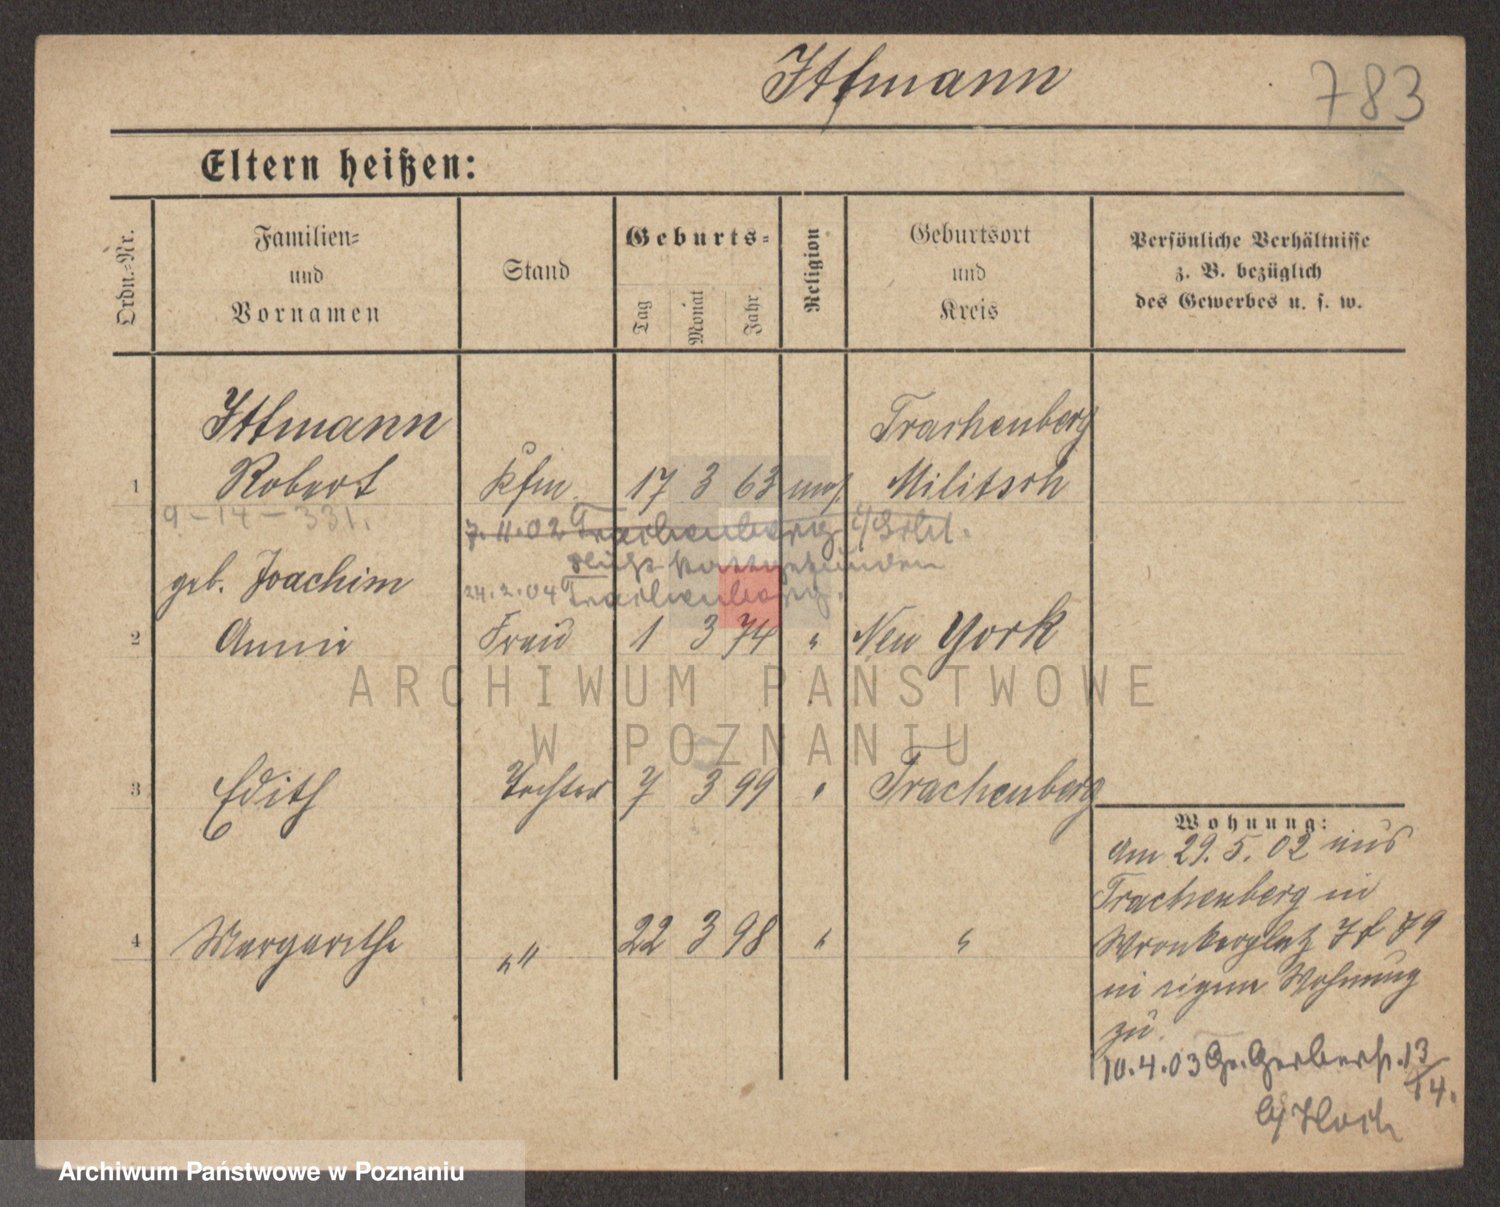 Ittmann
783
Eltern heißen:
Ordn.-Nr.
Familien-
und
Vornamen
Stand
Geburts-
Tag
Monat
Jahr
Religion
Geburtsort
und
Kreis
Persönliche Verhältnisse
z. B. bezüglich
des Gewerbes u. s. w.
Ittmann Trachenberg
1 Robert Kfm 17 3 63 mos. Militsch
9-14-331.
7.11.02 Trachenberg i/Schl.
nicht stattgefunden
geb. Joachim 24.2.04 Trachenberg.
2 Annie Frau 1 3 74 " New York
ARCHIWUM PAŃSTWOWE
W POZNANIU
3 Edith Tochter 7 3 99 " Trachenberg
Wohnung:
Am 29. 5. 02 aus
Trachenberg in
4 Margarethe "" 22 3 98 " "
Wronkerplatz
in eigene Wohnung
zu.
10.4.03 Gr. Gerberstr. 13/14.
b/
Archiwum Państwowe w Poznaniu